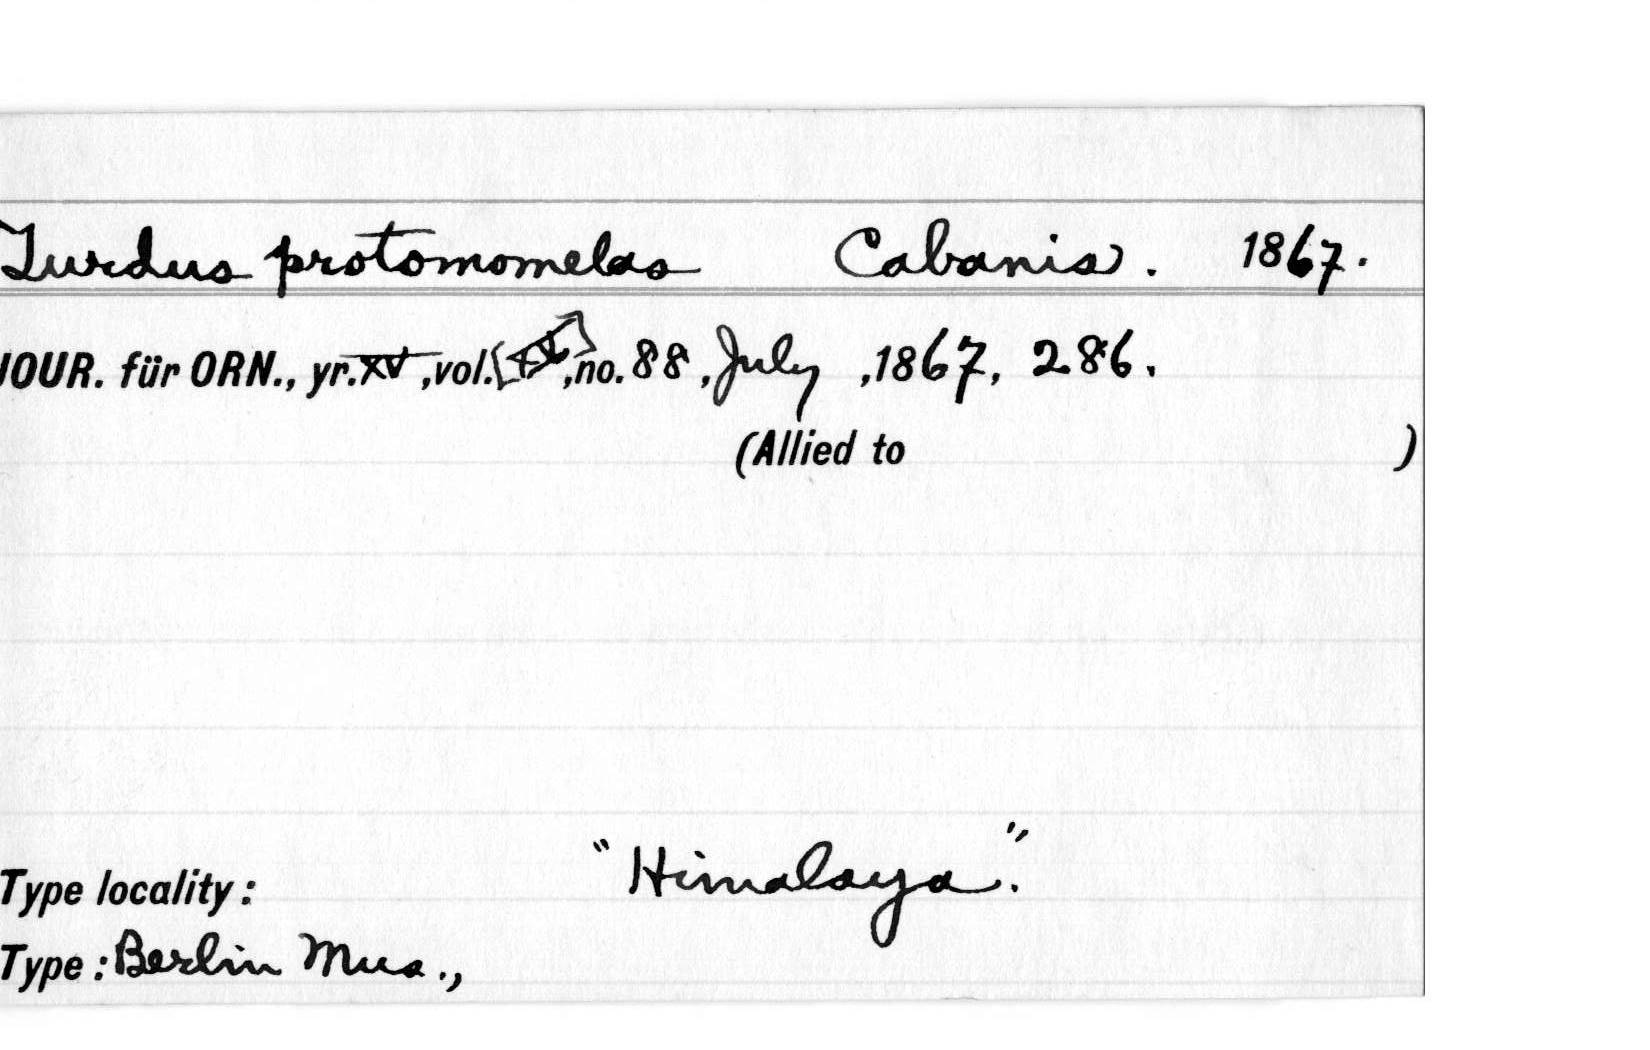 Turdus protomomelas Cabanis. 1867.
JOUR. für ORN., yr. XV, vol. , no. 88, July, 1867, 286.
(Allied to )
"Himalaya."
Type locality:
Type: Berlin Mus.,